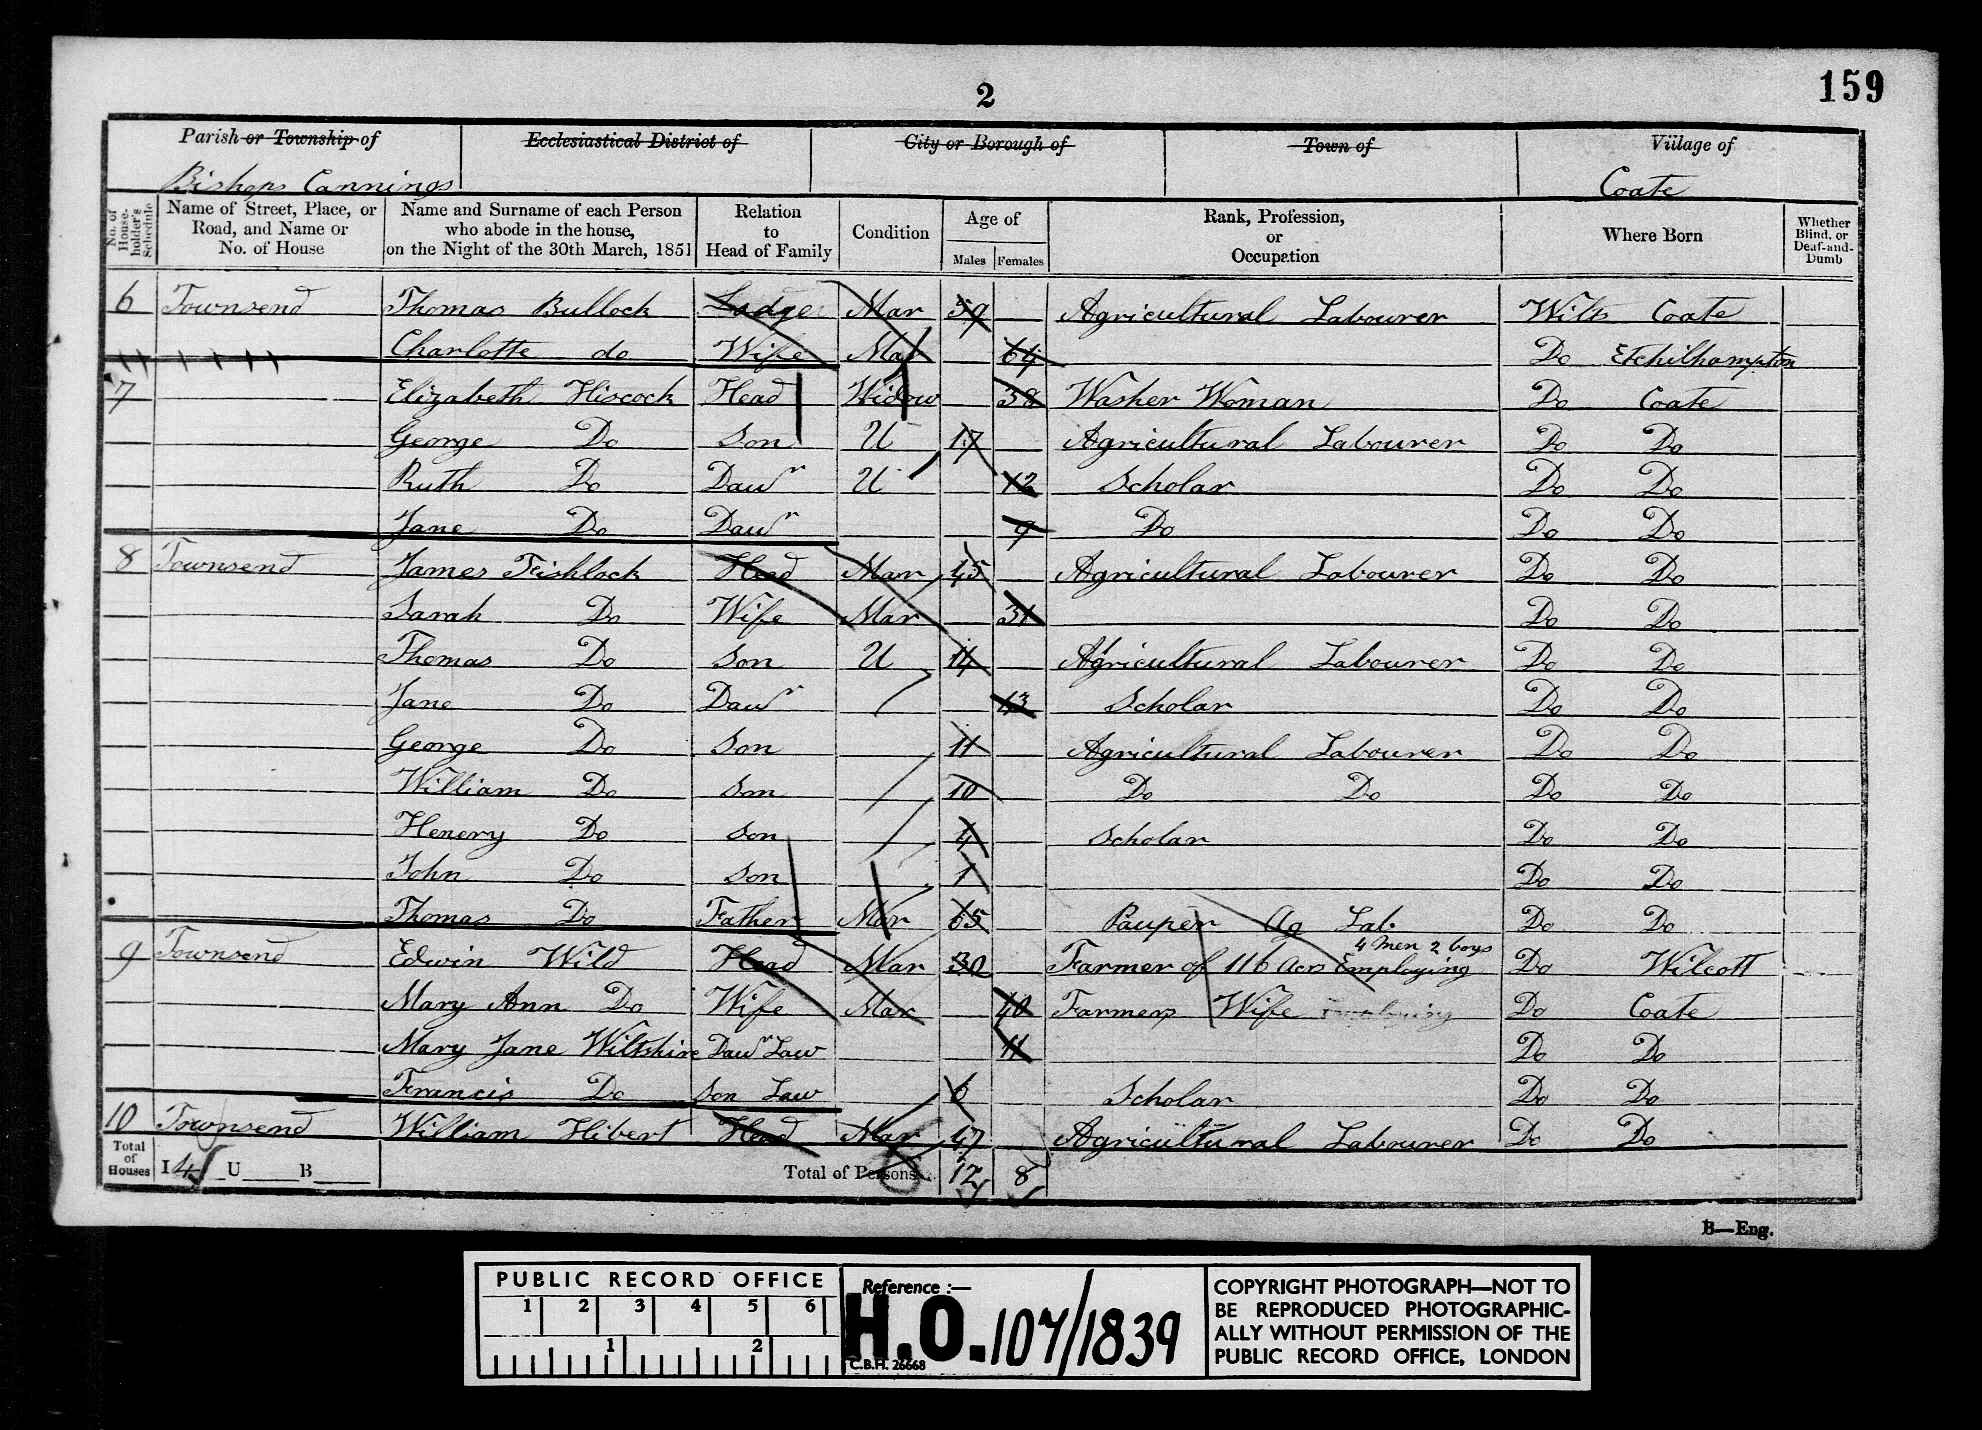 2
159
Parish or Township of
Ecclesiastical District of
City or Borough of
Town of
Village of
Bishops Cannings
Coate
No. of House-holder's Schedule
Name of Street, Place, or Road, and Name or No. of House
Name and Surname of each Person who abode in the house, on the Night of the 30th March, 1851
Relation to Head of Family
Condition
Age of
Males
Females
Rank, Profession, or Occupation
Where Born
Whether Blind, or Deaf-and-Dumb
6 Townsend Thomas Bullock Lodger Mar 59 Agricultural Labourer Wilts Coate
Charlotte do Wife Mar 64 Do Etchilhampton
7 Elizabeth Hiscock Head Widow 38 Washer Woman Do Coate
George Do Son U 17 Agricultural Labourer Do Do
Ruth Do Dawr U 12 Scholar Do Do
Jane Do Dawr 9 Do Do Do
8 Townsend James Frishlock Head Marr 45 Agricultural Labourer Do Do
Sarah Do Wife Mar 31 Do Do
Thomas Do Son U 14 Agricultural Labourer Do Do
Jane Do Dawr 13 Scholar Do Do
George Do Son 11 Agricultural Labourer Do Do
William Do Son 10 Do Do Do Do
Henery Do Son 4 Scholar Do Do
John Do Son 1 Do Do
Thomas Do Father Mar 65 Pauper Ag Lab. Do Do
9 Townsend Edwin Wild Head Mar 30 Farmer of 116 Acrs Employing 4 Men 2 boys Do Wilcott
Mary Ann Do Wife Mar 40 Farmers Wife Employing Do Coate
Mary Jane Wiltshire Dawr Law 11 Do Do
Francis Do Son Law 6 Scholar Do Do
10 Townsend William Hibert Head Mar 47 Agricultural Labourer Do Do
Total of Houses I 4 U B Total of Persons 12 8
B—Eng.
PUBLIC RECORD OFFICE
1 2 3 4 5 6
1 2
Reference :—
H.O. 107/1839
C.B.H. 26668
COPYRIGHT PHOTOGRAPH—NOT TO
BE REPRODUCED PHOTOGRAPHIC-
ALLY WITHOUT PERMISSION OF THE
PUBLIC RECORD OFFICE, LONDON